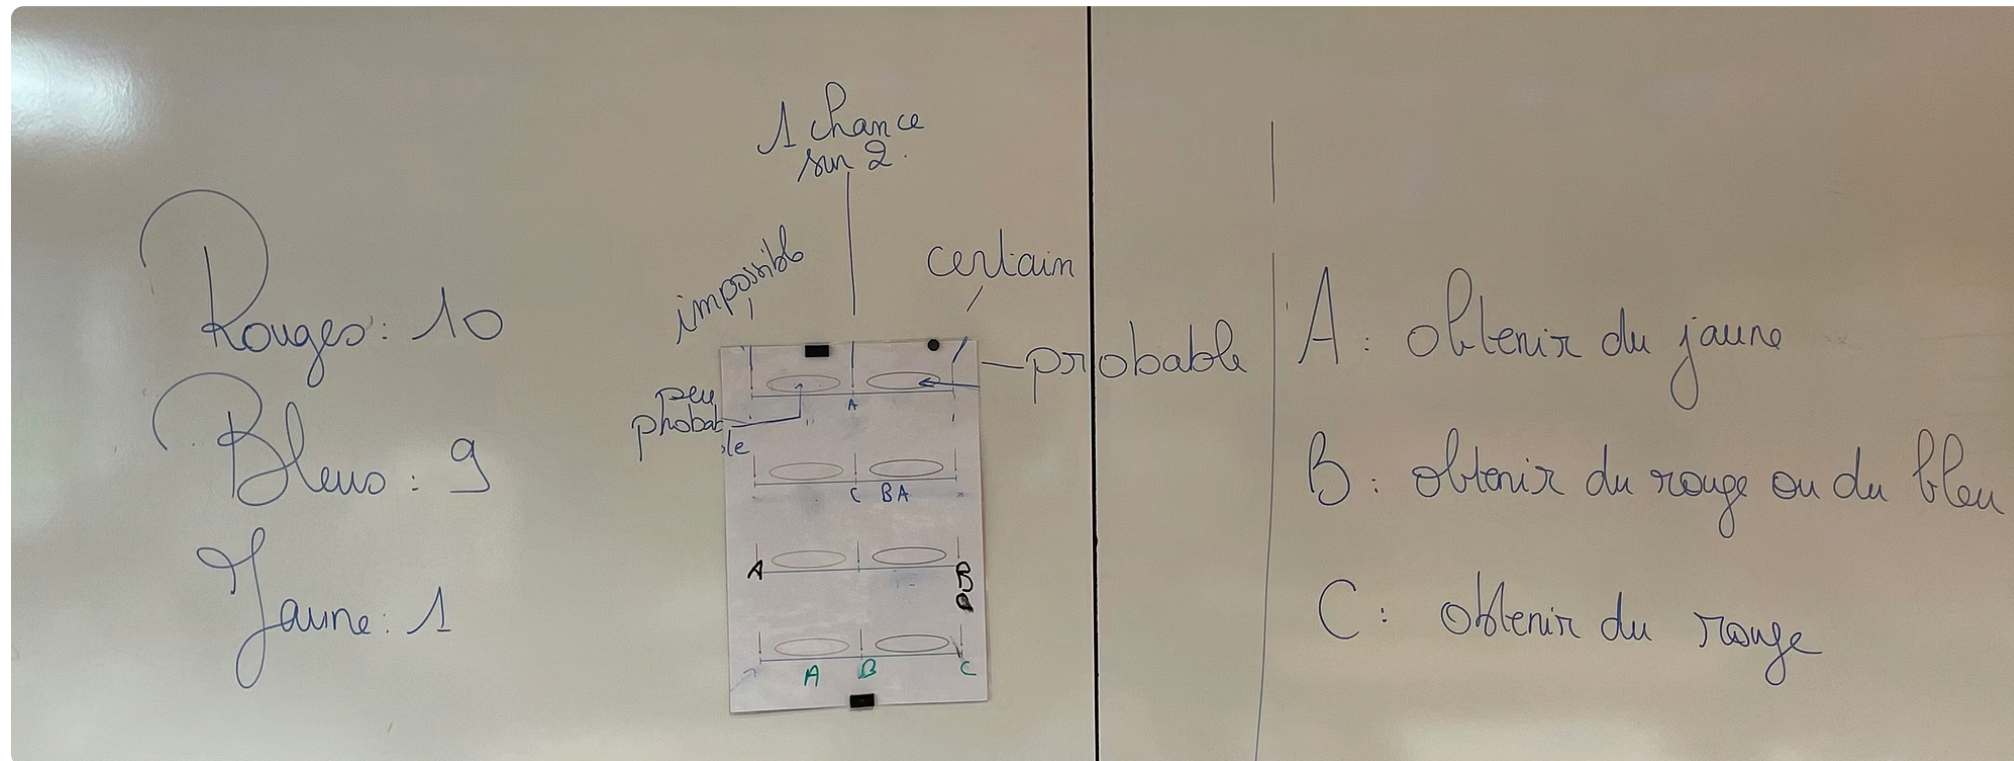 Rouges : 10
Bleus : 9
Jaune : 1
1 chance
sur 2.
impossible
certain
probable
peu
phobab
le
A
C B A
A
B
A B C
A : obtenir du jaune
B : obtenir du rouge ou du bleu
C : obtenir du rouge